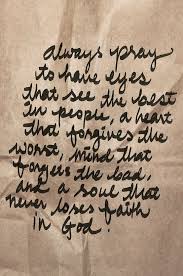 always pray
to have eyes
that see the best
in people, a heart
that forgives the
worst, mind that
forgets the bad,
and a soul that
never loses faith
in God.